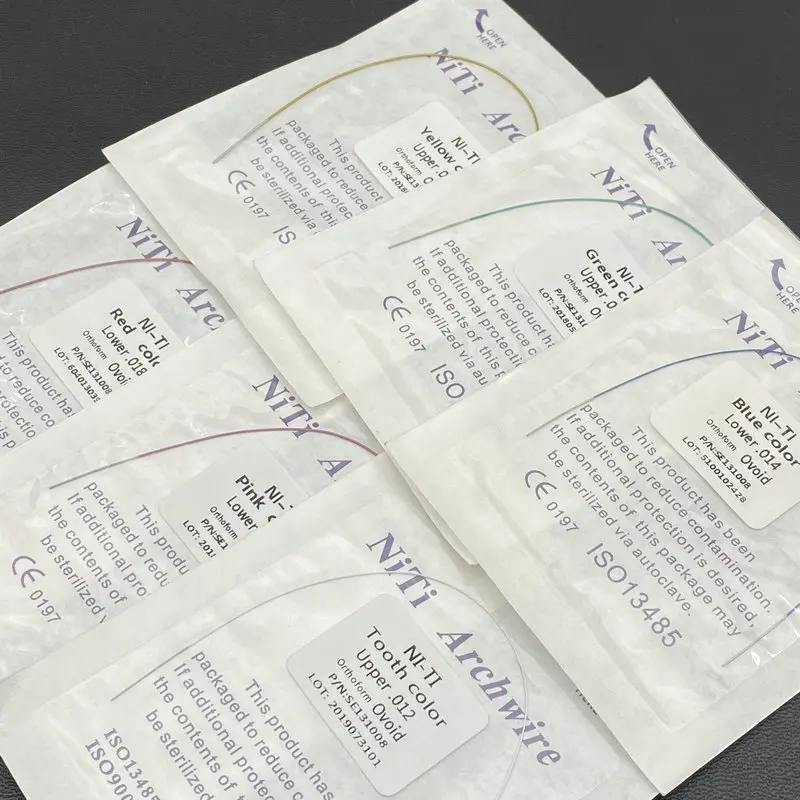 OPEN
HERE
NiTi Arc
NI-TI
Yellow c
Upper.0
Orthoform
P/N:SE13
LOT: 2018
This product
packaged to reduce
If additional protec
the contents of this
be sterilized via
CE 0197
IS
OPEN
HERE
NiTi A
NI-T
Green c
Upper.0
Orthoform
P/N:SE131
LOT: 201805
This product h
packaged to reduce c
If additional protection
the contents of this p
be sterilized via autocl
CE 0197
ISO
OPEN
HERE
NiTi
NI-TI
Blue color
Lower.014
Orthoform Ovoid
P/N:SE131008
LOT: 5100102428
This product has been
packaged to reduce contamination.
If additional protection is desired,
the contents of this package may
be sterilized via autoclave.
CE 0197
ISO13485
NiTi Arc
NI-TI
Red colo
Lower.018
Orthoform Ovoid
P/N:SE131008
LOT: 60401303
This product has
d to reduce co
protectio
s p
NiTi A
NI-T
Pink c
Lower
Orthoform
P/N:SE1
LOT: 201
This produc
packaged to redu
If additional pro
the contents of
be sterilized v
CE 0197
NiTi Archwire
NI-TI
Tooth color
Upper.012
Orthoform Ovoid
P/N:SE131008
LOT: 2019073101
This product has
packaged to reduce c
If additional protec
the contents of this
be sterilized via
ISO13485
ISO900